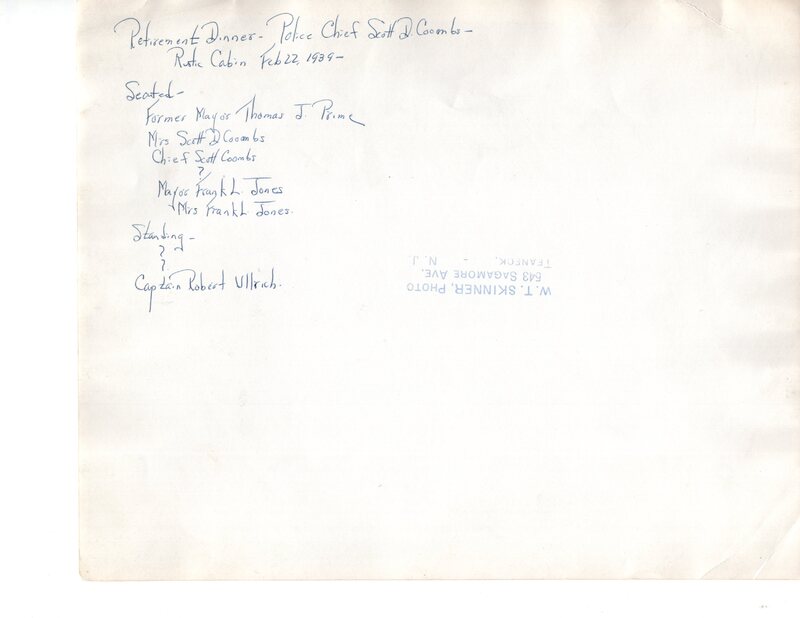 Retirement Dinner - Police Chief Scott D. Coombs -
Rustic Cabin Feb 22, 1939 -
Seated -
Former Mayor Thomas J. Prime
Mrs Scott D Coombs
Chief Scott Coombs
?
Mayor Frank L. Jones
Mrs Frank L. Jones.
Standing -
?
?
Captain Robert Ullrich.
W.T. SKINNER, PHOTO
543 SAGAMORE AVE.
TEANECK, - N.J.